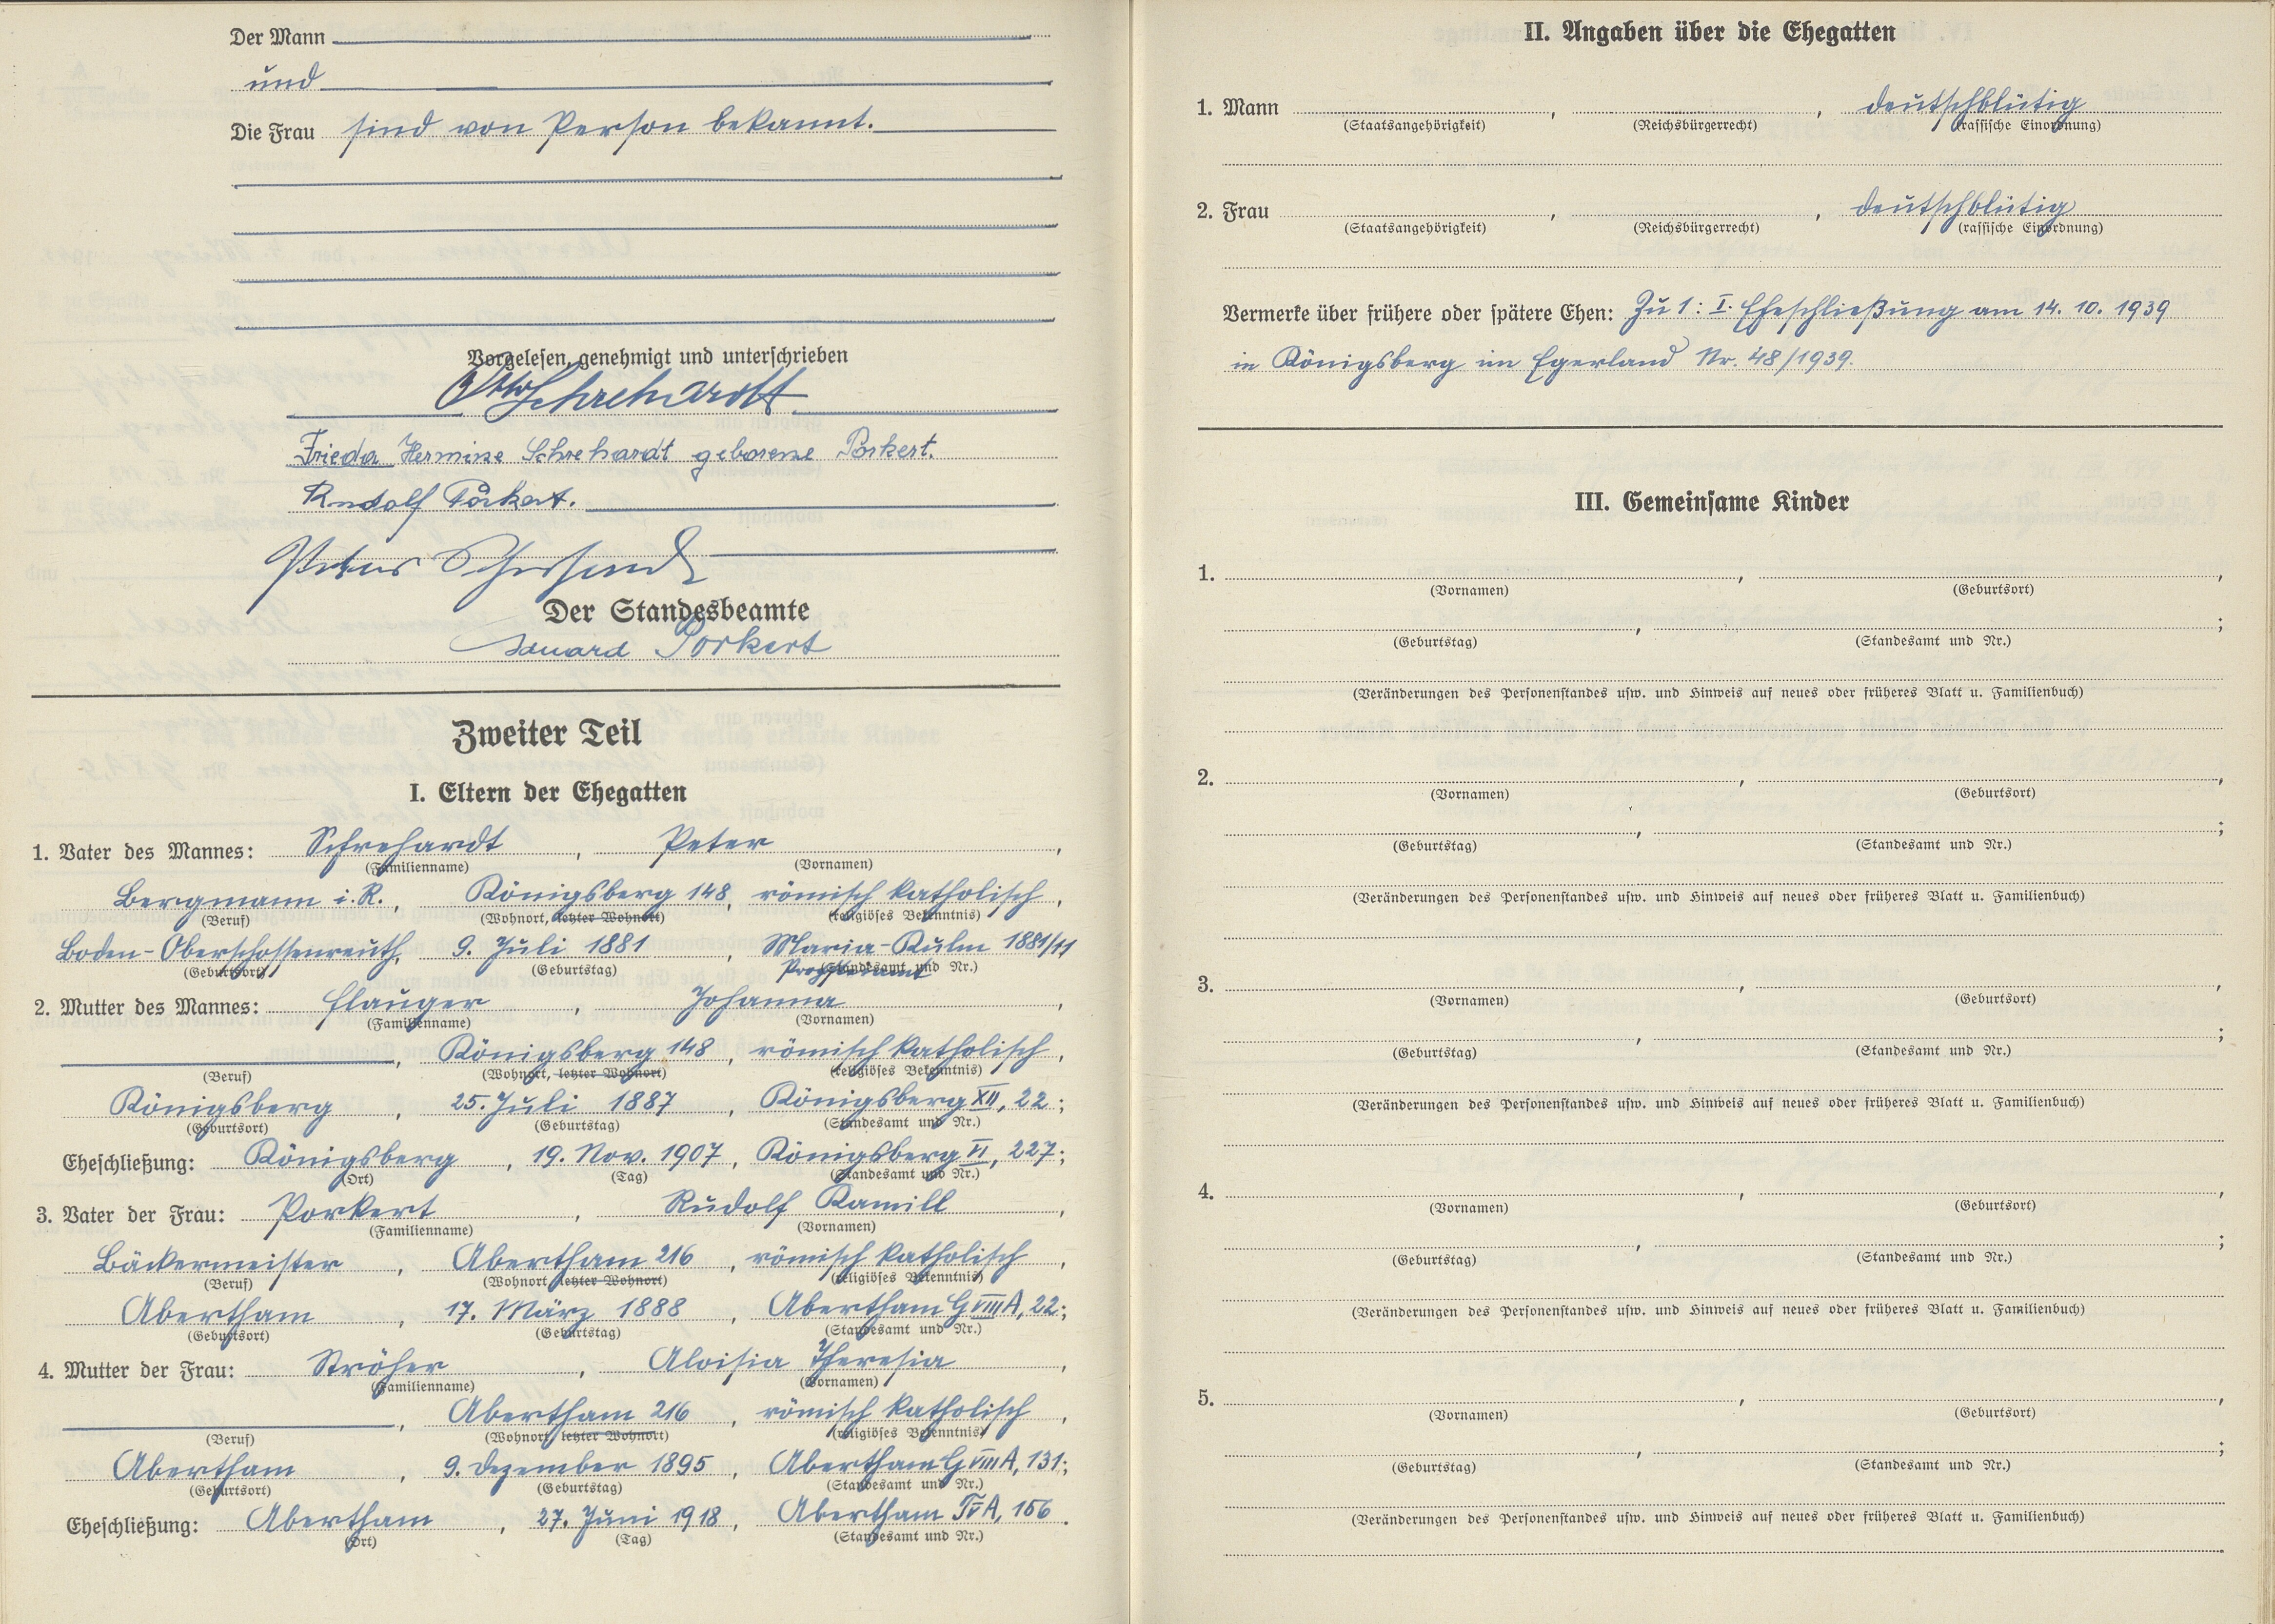 Der Mann
und
Die Frau sind von Person bekannt.
Vorgelesen, genehmigt und unterschrieben
Otto Schrehardt
Frieda Hermine Schrehardt geborene Porkert.
Rudolf Porkert.
Der Standesbeamte
Eduard Porkert
Zweiter Teil
I. Eltern der Ehegatten
1. Vater des Mannes: Schrehardt, Peter,
(Familienname) (Vornamen)
Bergmann i. R., Königsberg 148, römisch katholisch,
(Beruf) (Wohnort, letzter Wohnort) (religiöses Bekenntnis)
Boden-Oberschossenreuth, 9. Juli 1881, Maria-Kulm 1881/11
Propsteiamt
(Geburtsort) (Geburtstag) (Standesamt und Nr.)
2. Mutter des Mannes: Flauger, Johanna,
(Familienname) (Vornamen)
, Königsberg 148, römisch katholisch,
(Beruf) (Wohnort, letzter Wohnort) (religiöses Bekenntnis)
Königsberg, 25. Juli 1887, Königsberg XII, 22;
(Geburtsort) (Geburtstag) (Standesamt und Nr.)
Eheschließung: Königsberg, 19. Nov. 1907, Königsberg VI, 227;
(Ort) (Tag) (Standesamt und Nr.)
3. Vater der Frau: Porkert, Rudolf Kamill,
(Familienname) (Vornamen)
Bäckermeister, Abertham 216, römisch katholisch,
(Beruf) (Wohnort, letzter Wohnort) (religiöses Bekenntnis)
Abertham, 17. März 1888, Abertham G VIII A, 22;
(Geburtsort) (Geburtstag) (Standesamt und Nr.)
4. Mutter der Frau: Ströher, Aloisia Theresia,
(Familienname) (Vornamen)
, Abertham 216, römisch katholisch,
(Beruf) (Wohnort, letzter Wohnort) (religiöses Bekenntnis)
Abertham, 9. Dezember 1895, Abertham G VIII A, 131;
(Geburtsort) (Geburtstag) (Standesamt und Nr.)
Eheschließung: Abertham, 27. Juni 1918, Abertham T V A, 156.
(Ort) (Tag) (Standesamt und Nr.)
II. Angaben über die Ehegatten
1. Mann , , deutschblütig
(Staatsangehörigkeit) (Reichsbürgerrecht) (rassische Einordnung)
2. Frau , , deutschblütig
(Staatsangehörigkeit) (Reichsbürgerrecht) (rassische Einordnung)
Vermerke über frühere oder spätere Ehen: Zu 1: I. Eheschließung am 14. 10. 1939
in Königsberg im Egerland Nr. 48/1939.
III. Gemeinsame Kinder
1. , ,
(Vornamen) (Geburtsort)
, ;
(Geburtstag) (Standesamt und Nr.)
(Veränderungen des Personenstandes usw. und Hinweis auf neues oder früheres Blatt u. Familienbuch)
2. , ,
(Vornamen) (Geburtsort)
, ;
(Geburtstag) (Standesamt und Nr.)
(Veränderungen des Personenstandes usw. und Hinweis auf neues oder früheres Blatt u. Familienbuch)
3. , ,
(Vornamen) (Geburtsort)
, ;
(Geburtstag) (Standesamt und Nr.)
(Veränderungen des Personenstandes usw. und Hinweis auf neues oder früheres Blatt u. Familienbuch)
4. , ,
(Vornamen) (Geburtsort)
, ;
(Geburtstag) (Standesamt und Nr.)
(Veränderungen des Personenstandes usw. und Hinweis auf neues oder früheres Blatt u. Familienbuch)
5. , ,
(Vornamen) (Geburtsort)
, ;
(Geburtstag) (Standesamt und Nr.)
(Veränderungen des Personenstandes usw. und Hinweis auf neues oder früheres Blatt u. Familienbuch)